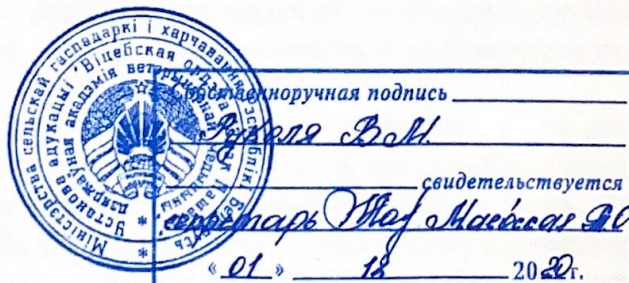 Міністэрства сельскай гаспадаркі і харчавання Рэспублікі Беларусь
Установа адукацыі "Віцебская ордэна "Знак Пашаны" дзяржаўная акадэмія ветэрынарнай медыцыны"
Собственноручная подпись
В.М.
свидетельствуется
секретарь
« 01 » 12 2020г.